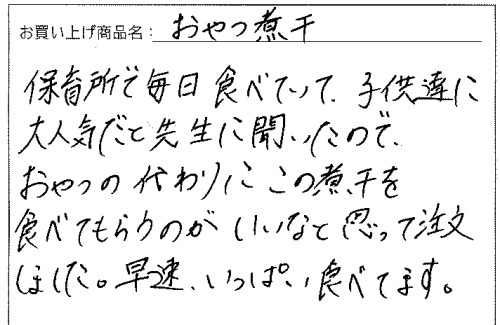 お買い上げ商品名: おやつ煮干
保育所で毎日食べていて、子供達に
大人気だと先生に聞いたので、
おやつの代わりにこの煮干を
食べてもらうのがいいなと思って注文
しました。早速、いっぱい食べてます。